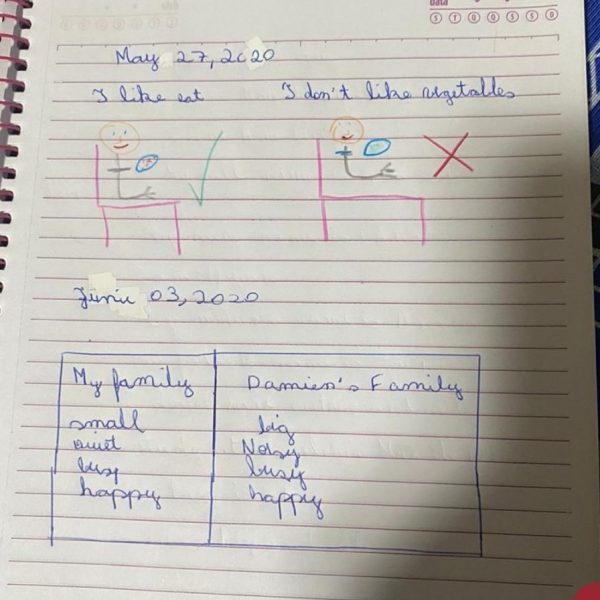 Data
S T Q Q S S D
May 27, 2020
I like eat I don't like vegetables
Junie 03, 2020
My family Damien's Family
small big
quiet Noisy
busy busy
happy happy